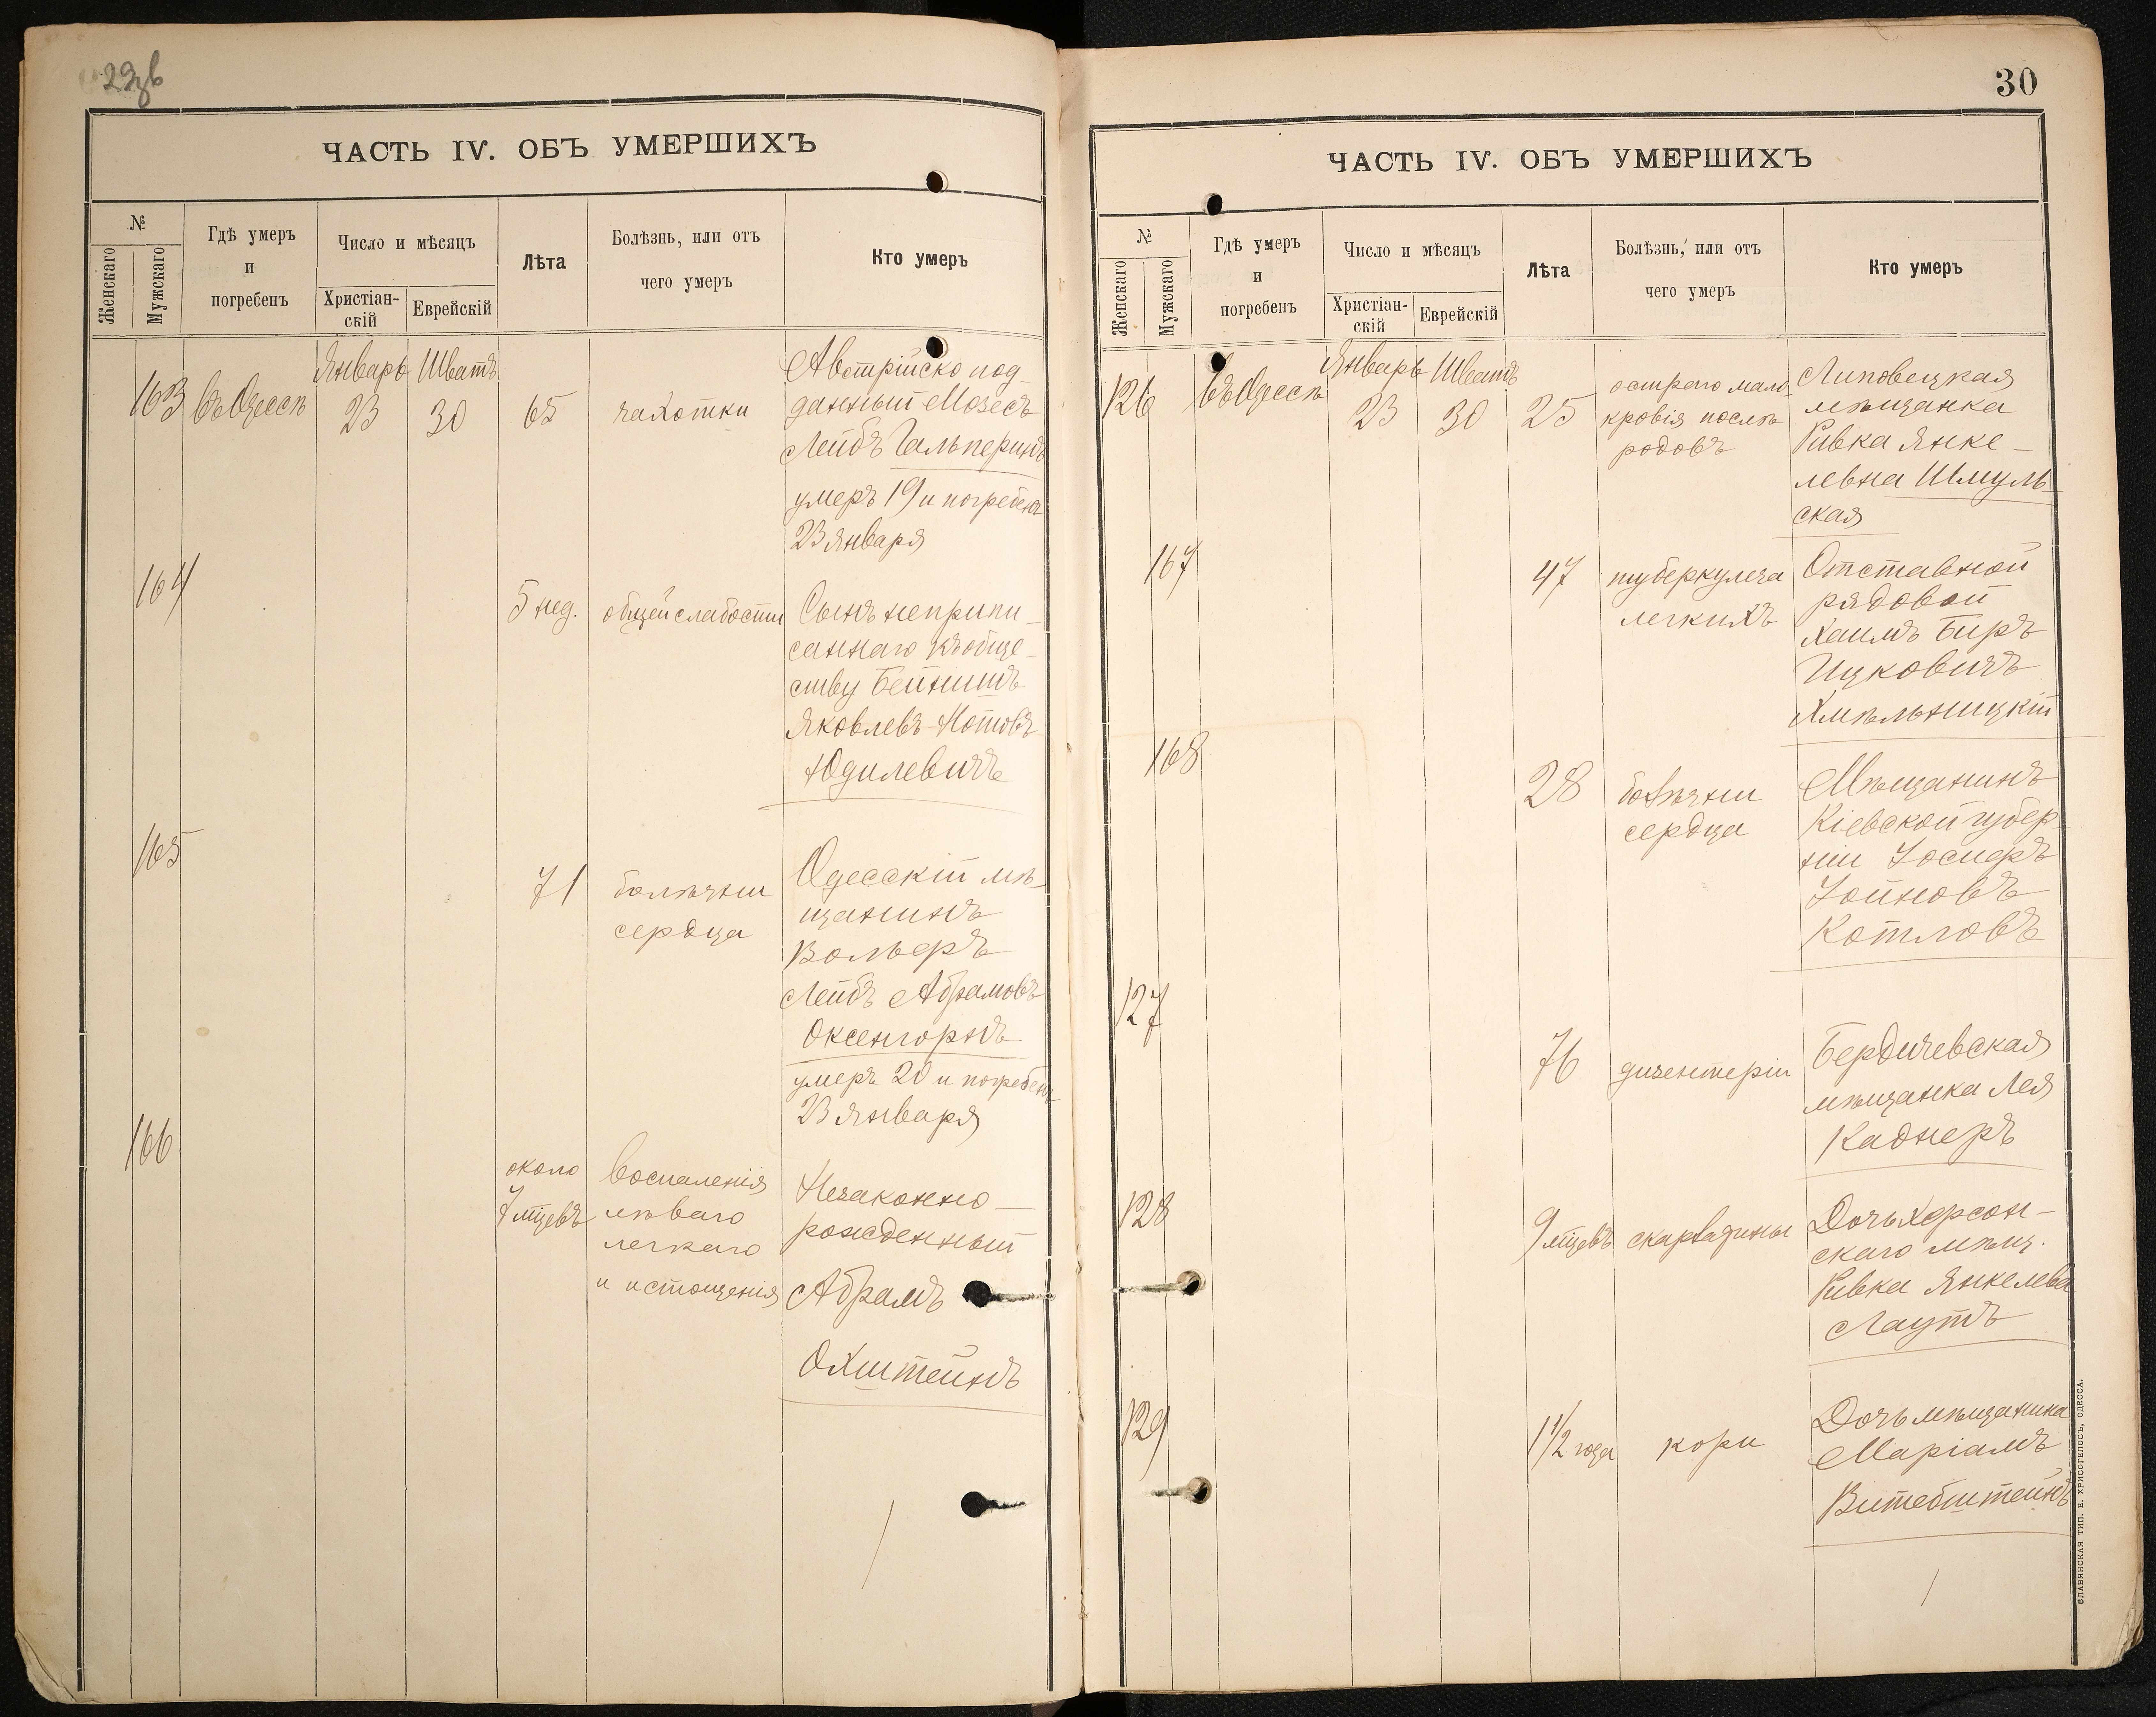 29зв
ЧАСТЬ IV. ОБЪ УМЕРШИХЪ
№
Женскаго
Мужскаго
Гдѣ умеръ
и
погребенъ
Число и мѣсяцъ
Христіан-
скій
Еврейскій
Лѣта
Болѣзнь, или отъ
чего умеръ
Кто умеръ
163
въ Одессѣ
Январь
23
Шватъ
30
65
чахотки
Австрійско под-
данный Мозесъ
Лейбъ Гальперинъ
умеръ 19 и погребенъ
23 января
164
5 нед.
общей слабости
Сынъ неприпи-
саннаго къ обще-
ству Бейнишъ
Яковлевъ-Нотовъ
Юдилевичъ
165
71
болѣзни
сердца
Одесскій мѣ-
щанинъ
Вольфъ
Лейбъ Абрамовъ
Оксенгорнъ
умеръ 20 и погребенъ
23 января
166
около
7 мцевъ
воспаленія
лѣваго
легкаго
и истощенія
Незаконно-
рожденный
Абрамъ
Охштейнъ
30
ЧАСТЬ IV. ОБЪ УМЕРШИХЪ
№
Женскаго
Мужскаго
Гдѣ умеръ
и
погребенъ
Число и мѣсяцъ
Христіан-
скій
Еврейскій
Лѣта
Болѣзнь, или отъ
чего умеръ
Кто умеръ
126
въ Одессѣ
Январь
23
Шватъ
30
25
остраго мало-
кровія послѣ
родовъ
Липовецкая
мѣщанка
Ривка Янке-
левна Шмуль-
ская
167
47
туберкулеза
легкихъ
Отставной
рядовой
Хаимъ Биръ
Ицковичъ
Хмѣльницкій
168
28
болѣзни
сердца
Мѣщанинъ
Кіевской губер-
ніи Іосифъ
Іойновъ
Котловъ
127
76
дизентеріи
Бердичевская
мѣщанка Лея
Каднеръ
128
9 мцевъ
скарлатины
Дочь Херсон-
скаго мѣщ.
Ривка Янкелева
Лаутъ
129
1 1/2 года
кори
Дочь мѣщанина
Маріамъ
Витебштейнъ
СЛАВЯНСКАЯ ТИП. Е. ХРИСОГЕЛОСЪ, ОДЕССА.